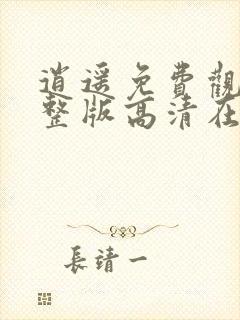 逍遥免費觀
整版高清在
長靖一